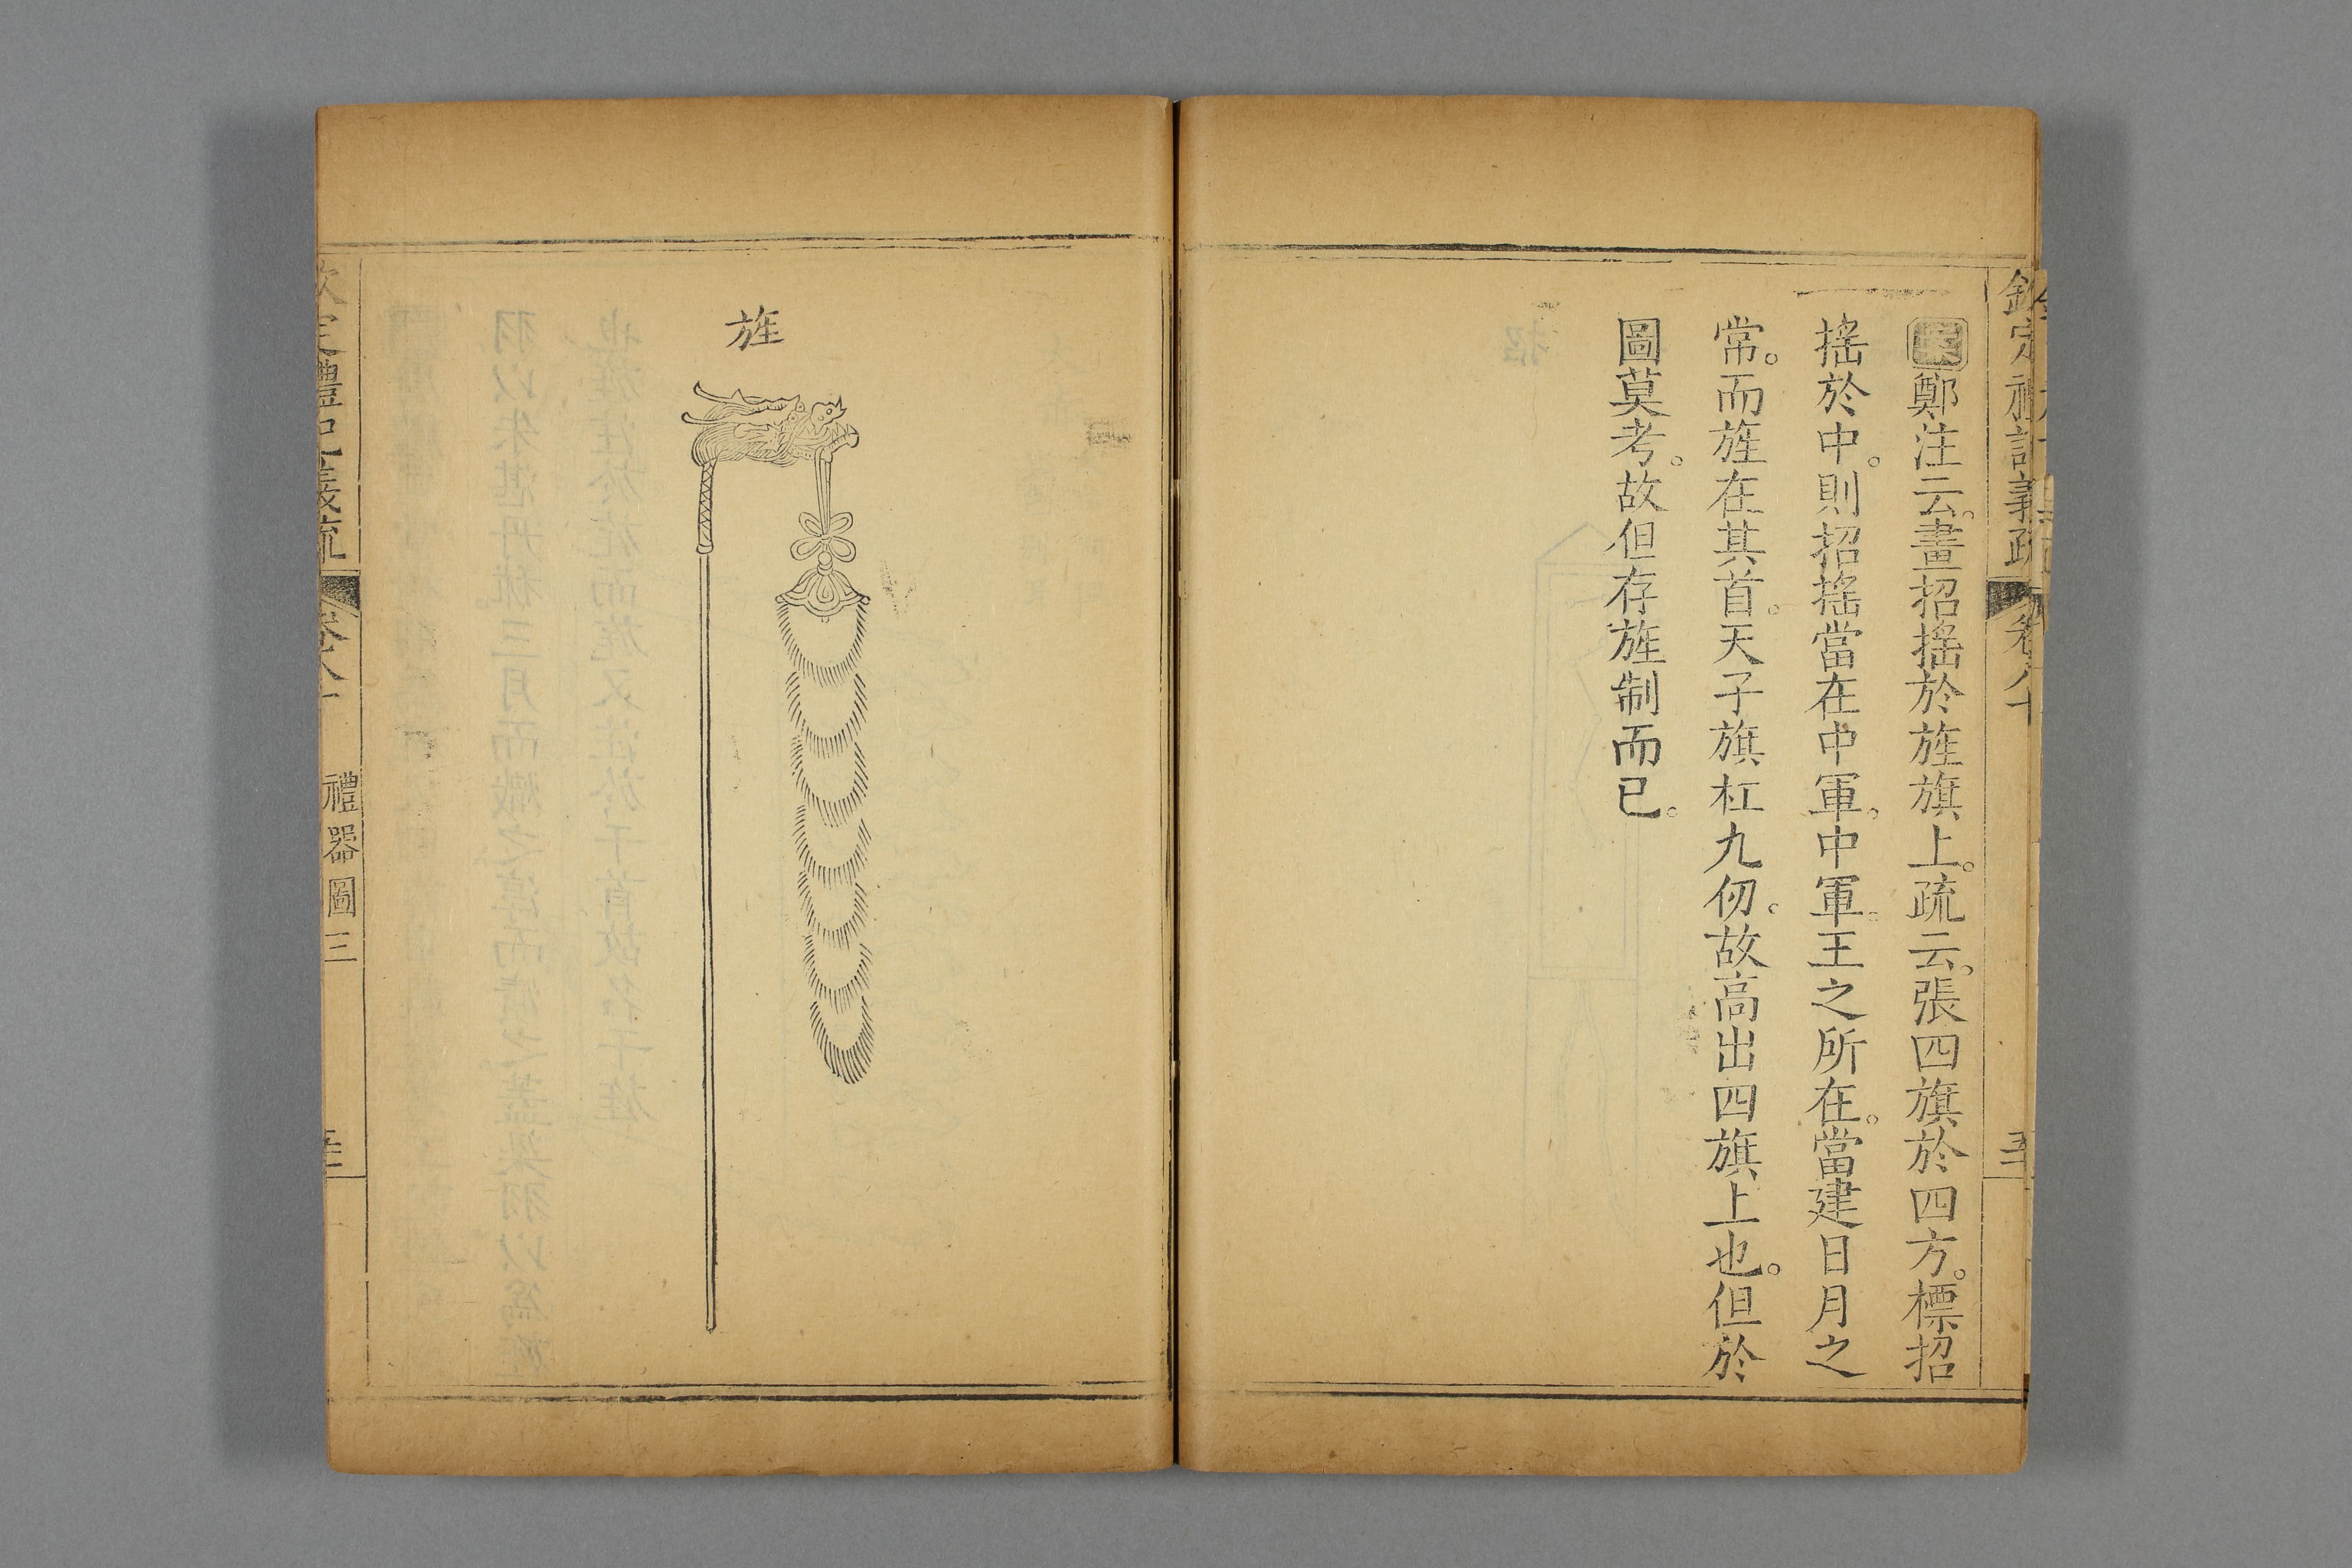 欽定禮記義疏 卷八十
案鄭注云。畫招搖於旌旗上。疏云。張四旗於四方。標招
搖於中。則招搖當在中軍。中軍。王之所在。當建日月之
常。而旌在其首。天子旗杠九仞。故高出四旗上也。但於
圖莫考。故但存旌制而已。
旌
欽定禮記義疏 卷八十 禮器圖三